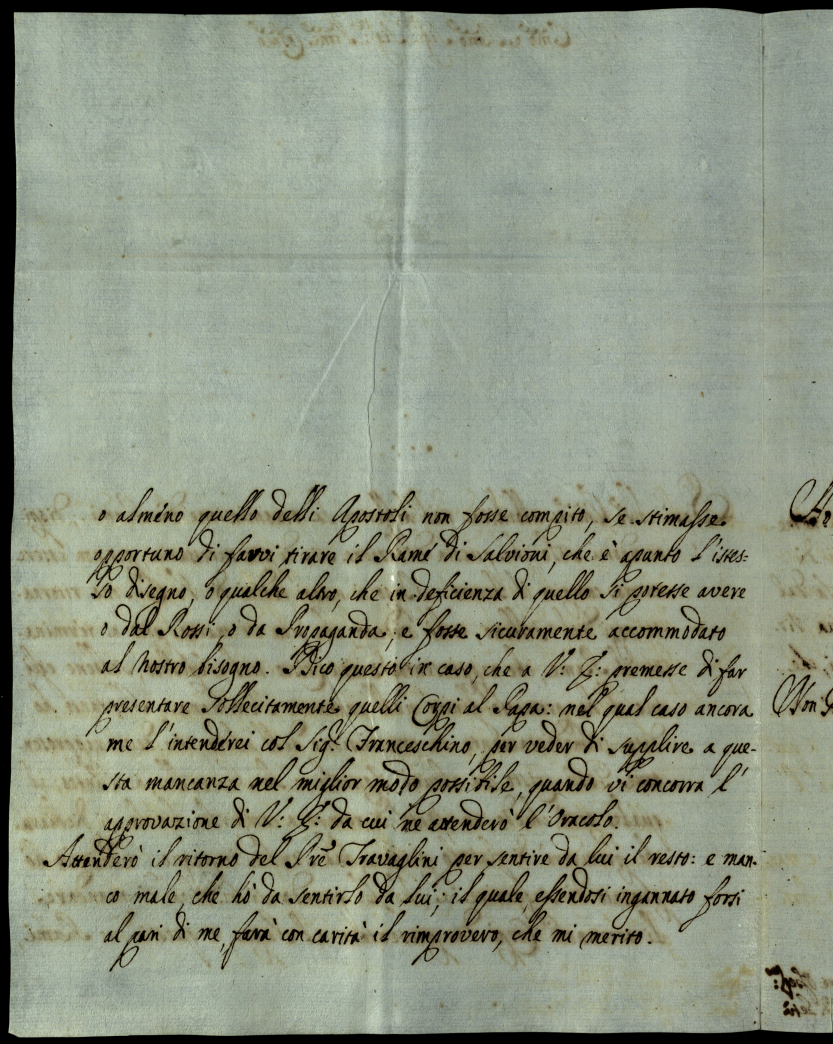 o alméno quello delli Apostoli non fosse compito, se stimasse
opportuno di farvi tirare il Rame di Salvioni, che è apunto l'istes=
so disegno, o qualche altro, che in deficienza di quello si potesse avere
o dal Rossi, o da Propaganda, e fosse sicuramente accommodato
al nostro bisogno. Dico questo in caso, che a V: premesse di far
presentare sollecitamente quelli Corpi al Papa: nel qual caso ancora
me l'intenderei col Sig.r Franceschino, per veder di supplire a que-
sta mancanza nel miglior modo possibile, quando vi concorra l'
approvazione di V: da cui ne attenderò l'Oracolo.
Attenderò il ritorno del Pre Travaglini per sentire da lui il resto: e man-
co male, che hò da sentirlo da lui; il quale essendosi ingannato forsi
al pari di me, farà con carità il rimprovero, che mi merito.
Non